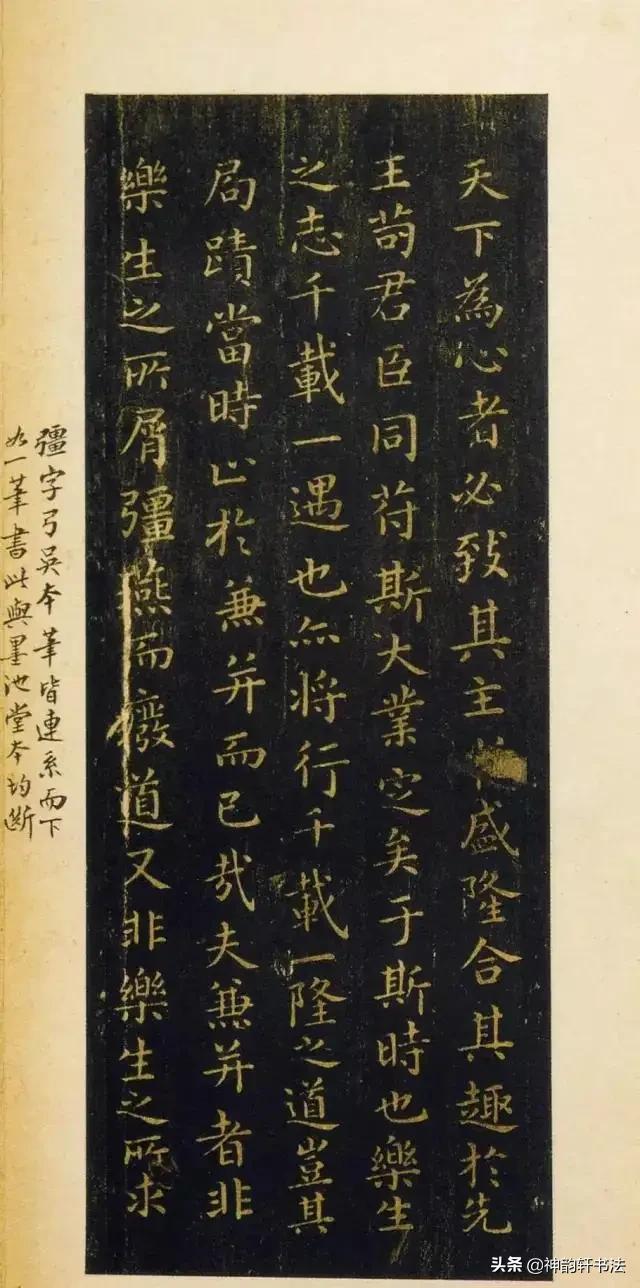 天下為心者必致其主盛隆合其趣於先
王苟君臣同符斯大業定矣于斯時也樂生
之志千載一遇也亦將行千載一隆之道豈其
局蹟當時止於兼并而已哉夫兼并者非
樂生之所屑彊燕而廢道又非樂生之所求
彊字弓吳本筆皆連系而下
如一筆書此與墨池堂本均斷
头条 @神韵轩书法